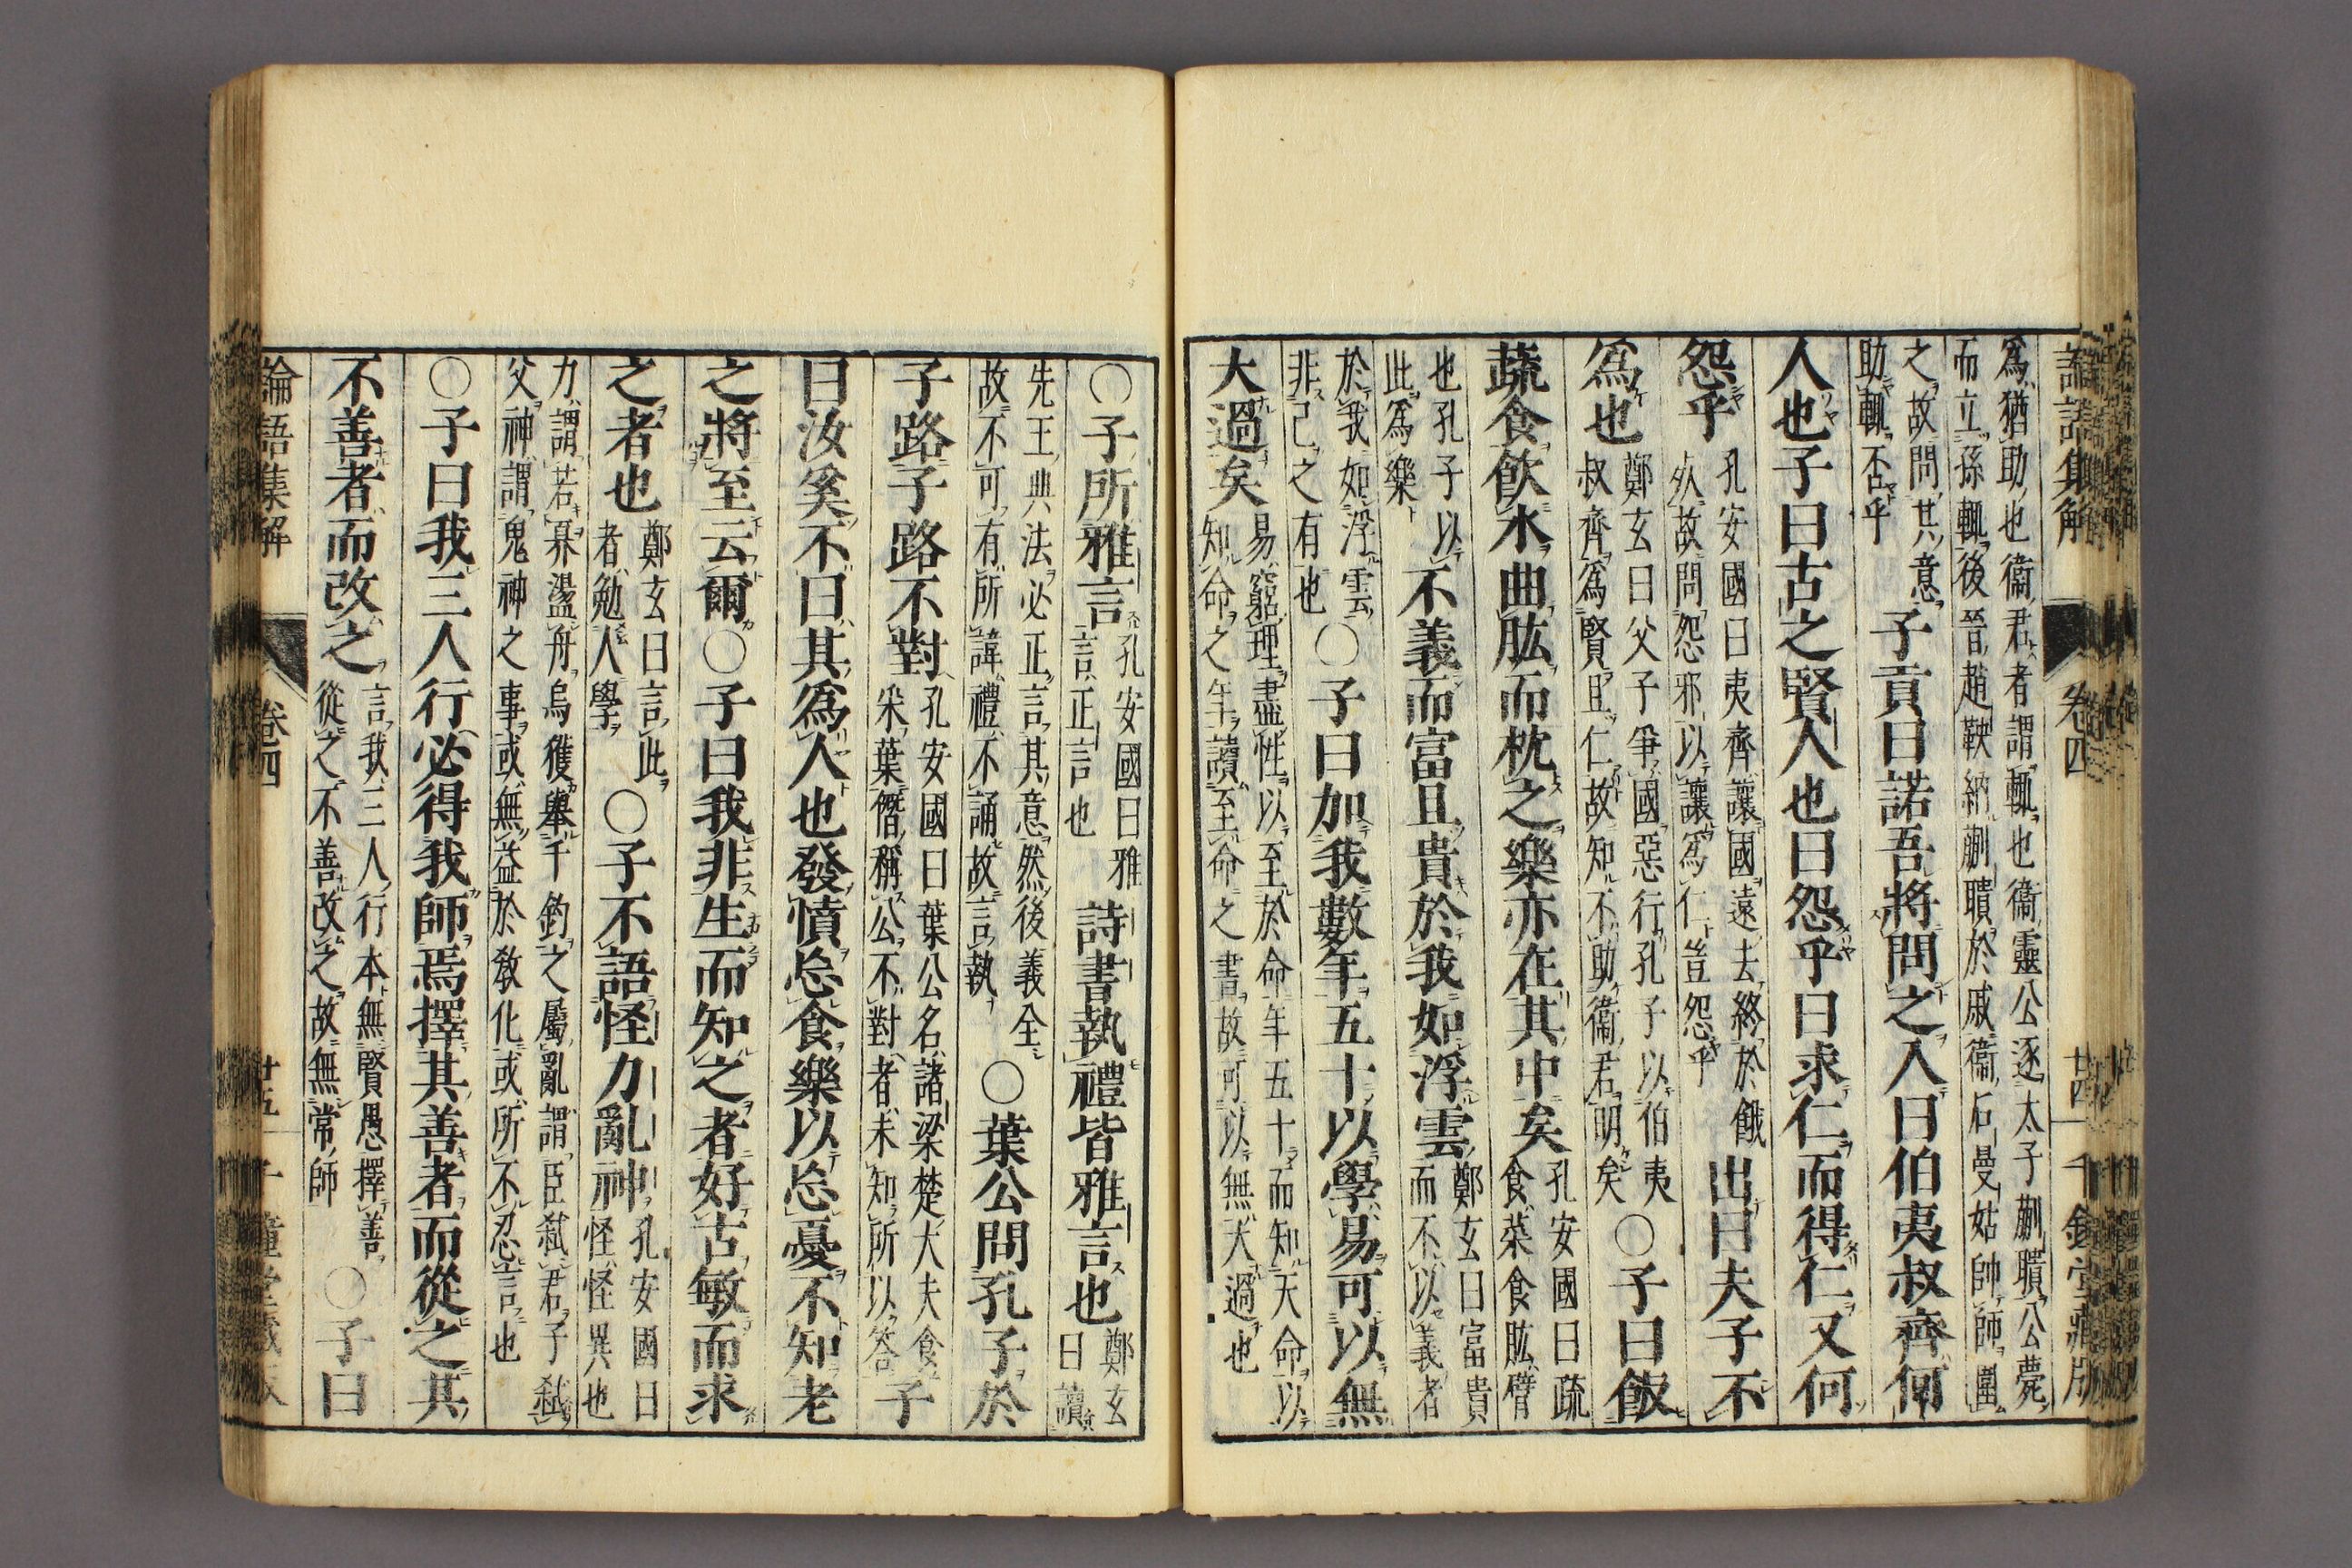 論語集解 卷四 廿四 千鍾堂藏版
爲猶助也衞君者謂輒也衞靈公逐太子蒯聵公薨
而立孫輒後晉趙鞅納蒯聵於戚衞石曼姑帥師圍
之故問其意
助輒不乎
子貢曰諾吾將問之入曰伯夷叔齊何
人也子曰古之賢人也曰怨乎曰求仁而得仁又何
怨乎
孔安國曰夷齊讓國遠去終於餓
死故問怨邪以讓爲仁豈怨乎
出曰夫子不
爲也
鄭玄曰父子爭國惡行孔子以伯夷
叔齊爲賢且仁故知不助衞君明矣
○子曰飯
蔬食飮水曲肱而枕之樂亦在其中矣
孔安國曰疏
食菜食肱臂
也孔子以
此爲樂
不義而富且貴於我如浮雲
鄭玄曰富貴
而不以義者
於我如浮雲
非己之有也
○子曰加我數年五十以學易可以無
大過矣
易窮理盡性以至於命年五十而知天命以
知命之年讀至命之書故可以無大過也
○子所雅言
孔安國曰雅
言正言也
詩書執禮皆雅言也
鄭玄
曰讀
先王典法必正言其意然後義全
故不可有所諱禮不誦故言執
○葉公問孔子於
子路子路不對
孔安國曰葉公名諸梁楚大夫食
采葉僭稱公不對者未知所以答
子
曰汝奚不曰其爲人也發憤忘食樂以忘憂不知老
之將至云爾○子曰我非生而知之者好古敏而求
之者也
鄭玄曰言此
者勉人學
○子不語怪力亂神
孔安國曰
怪怪異也
力謂若奡盪舟烏獲擧千鈞之屬亂謂臣弑君子弑
父神謂鬼神之事或無益於敎化或所不忍言也
○子曰我三人行必得我師焉擇其善者而從之其
不善者而改之
言我三人行本無賢愚擇善
從之不善改之故無常師
○子曰
論語集解 卷四 廿五 千鍾堂藏版